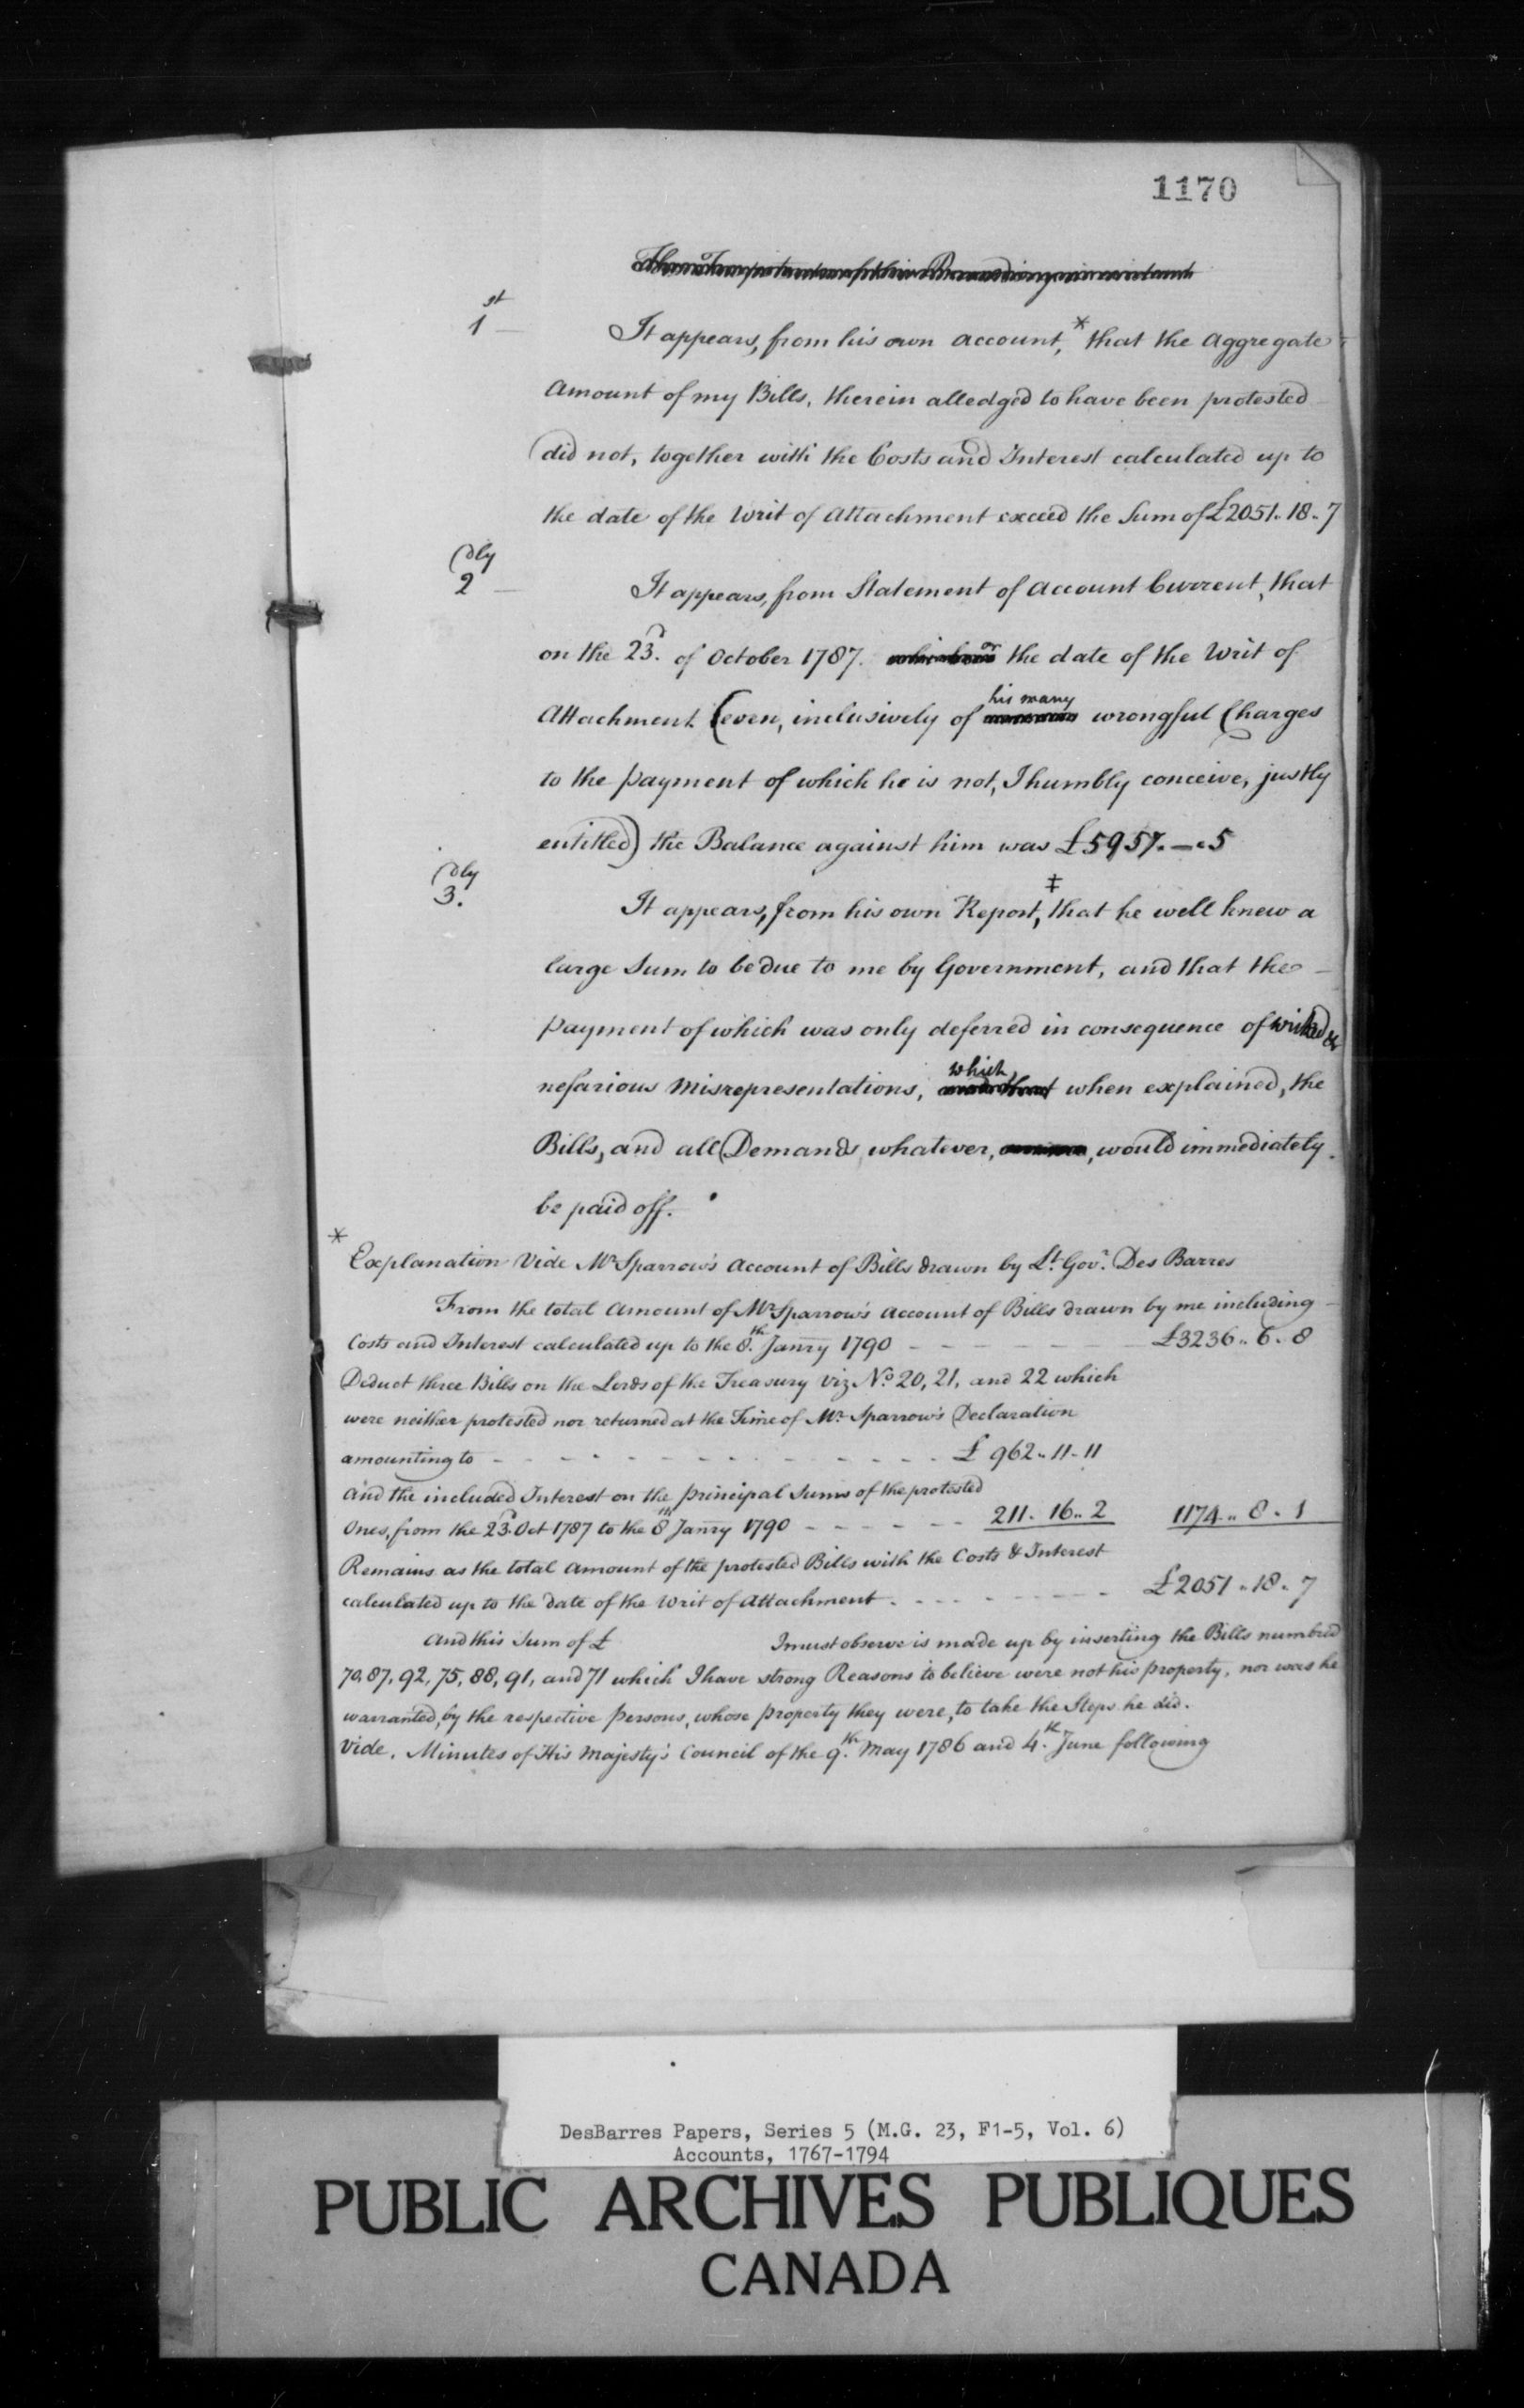 1170
1st
It appears, from his own account,* that the Aggregate
Amount of my Bills, therein alledged to have been protested
did not, together with the Costs and Interest calculated up to
the date of the Writ of Attachment exceed the Sum of £2051. 18. 7
2dly
It appears, from Statement of Account Current, that
on the 23d. of October 1787. the date of the Writ of
Attachment (even, inclusively of his many wrongful Charges
to the payment of which he is not, I humbly conceive, justly
entitled) the Balance against him was £5957. — . 5
3dly.
It appears, from his own Report,‡ that he well knew a
large Sum to be due to me by Government, and that the
payment of which was only deferred in consequence of wicked &
nefarious misrepresentations, which, when explained, the
Bills, and all Demands whatever, would immediately
be paid off.
* Explanation Vide Mr Sparrow's Account of Bills drawn by Lt. Govr. Des Barres
From the total Amount of Mr Sparrow's Account of Bills drawn by me including
Costs and Interest calculated up to the 8th. Janry 1790 - - - - - £3236.. 6. 8
Deduct three Bills on the Lords of the Treasury viz No. 20, 21, and 22 which
were neither protested nor returned at the Time of Mr Sparrow's Declaration
amounting to - - - - - £ 962.. 11. 11
and the included Interest on the principal Sums of the protested
Ones, from the 23d. Oct 1787 to the 8th Janry 1790 - - - - - 211. 16.. 2 1174.. 8. 1
Remains as the total Amount of the protested Bills with the Costs & Interest
calculated up to the date of the Writ of Attachment. - - - - - £2051.. 18. 7
And this Sum of £ I must observe is made up by inserting the Bills numbred
70, 87, 92, 75, 88, 91, and 71 which I have strong Reasons to believe were not his property, nor was he
warranted, by the respective Persons, whose property they were, to take the Steps he did.
Vide. Minutes of His Majesty's Council of the 9th. May 1786 and 4th. June following
DesBarres Papers, Series 5 (M.G. 23, F1-5, Vol. 6)
Accounts, 1767-1794
PUBLIC ARCHIVES PUBLIQUES
CANADA